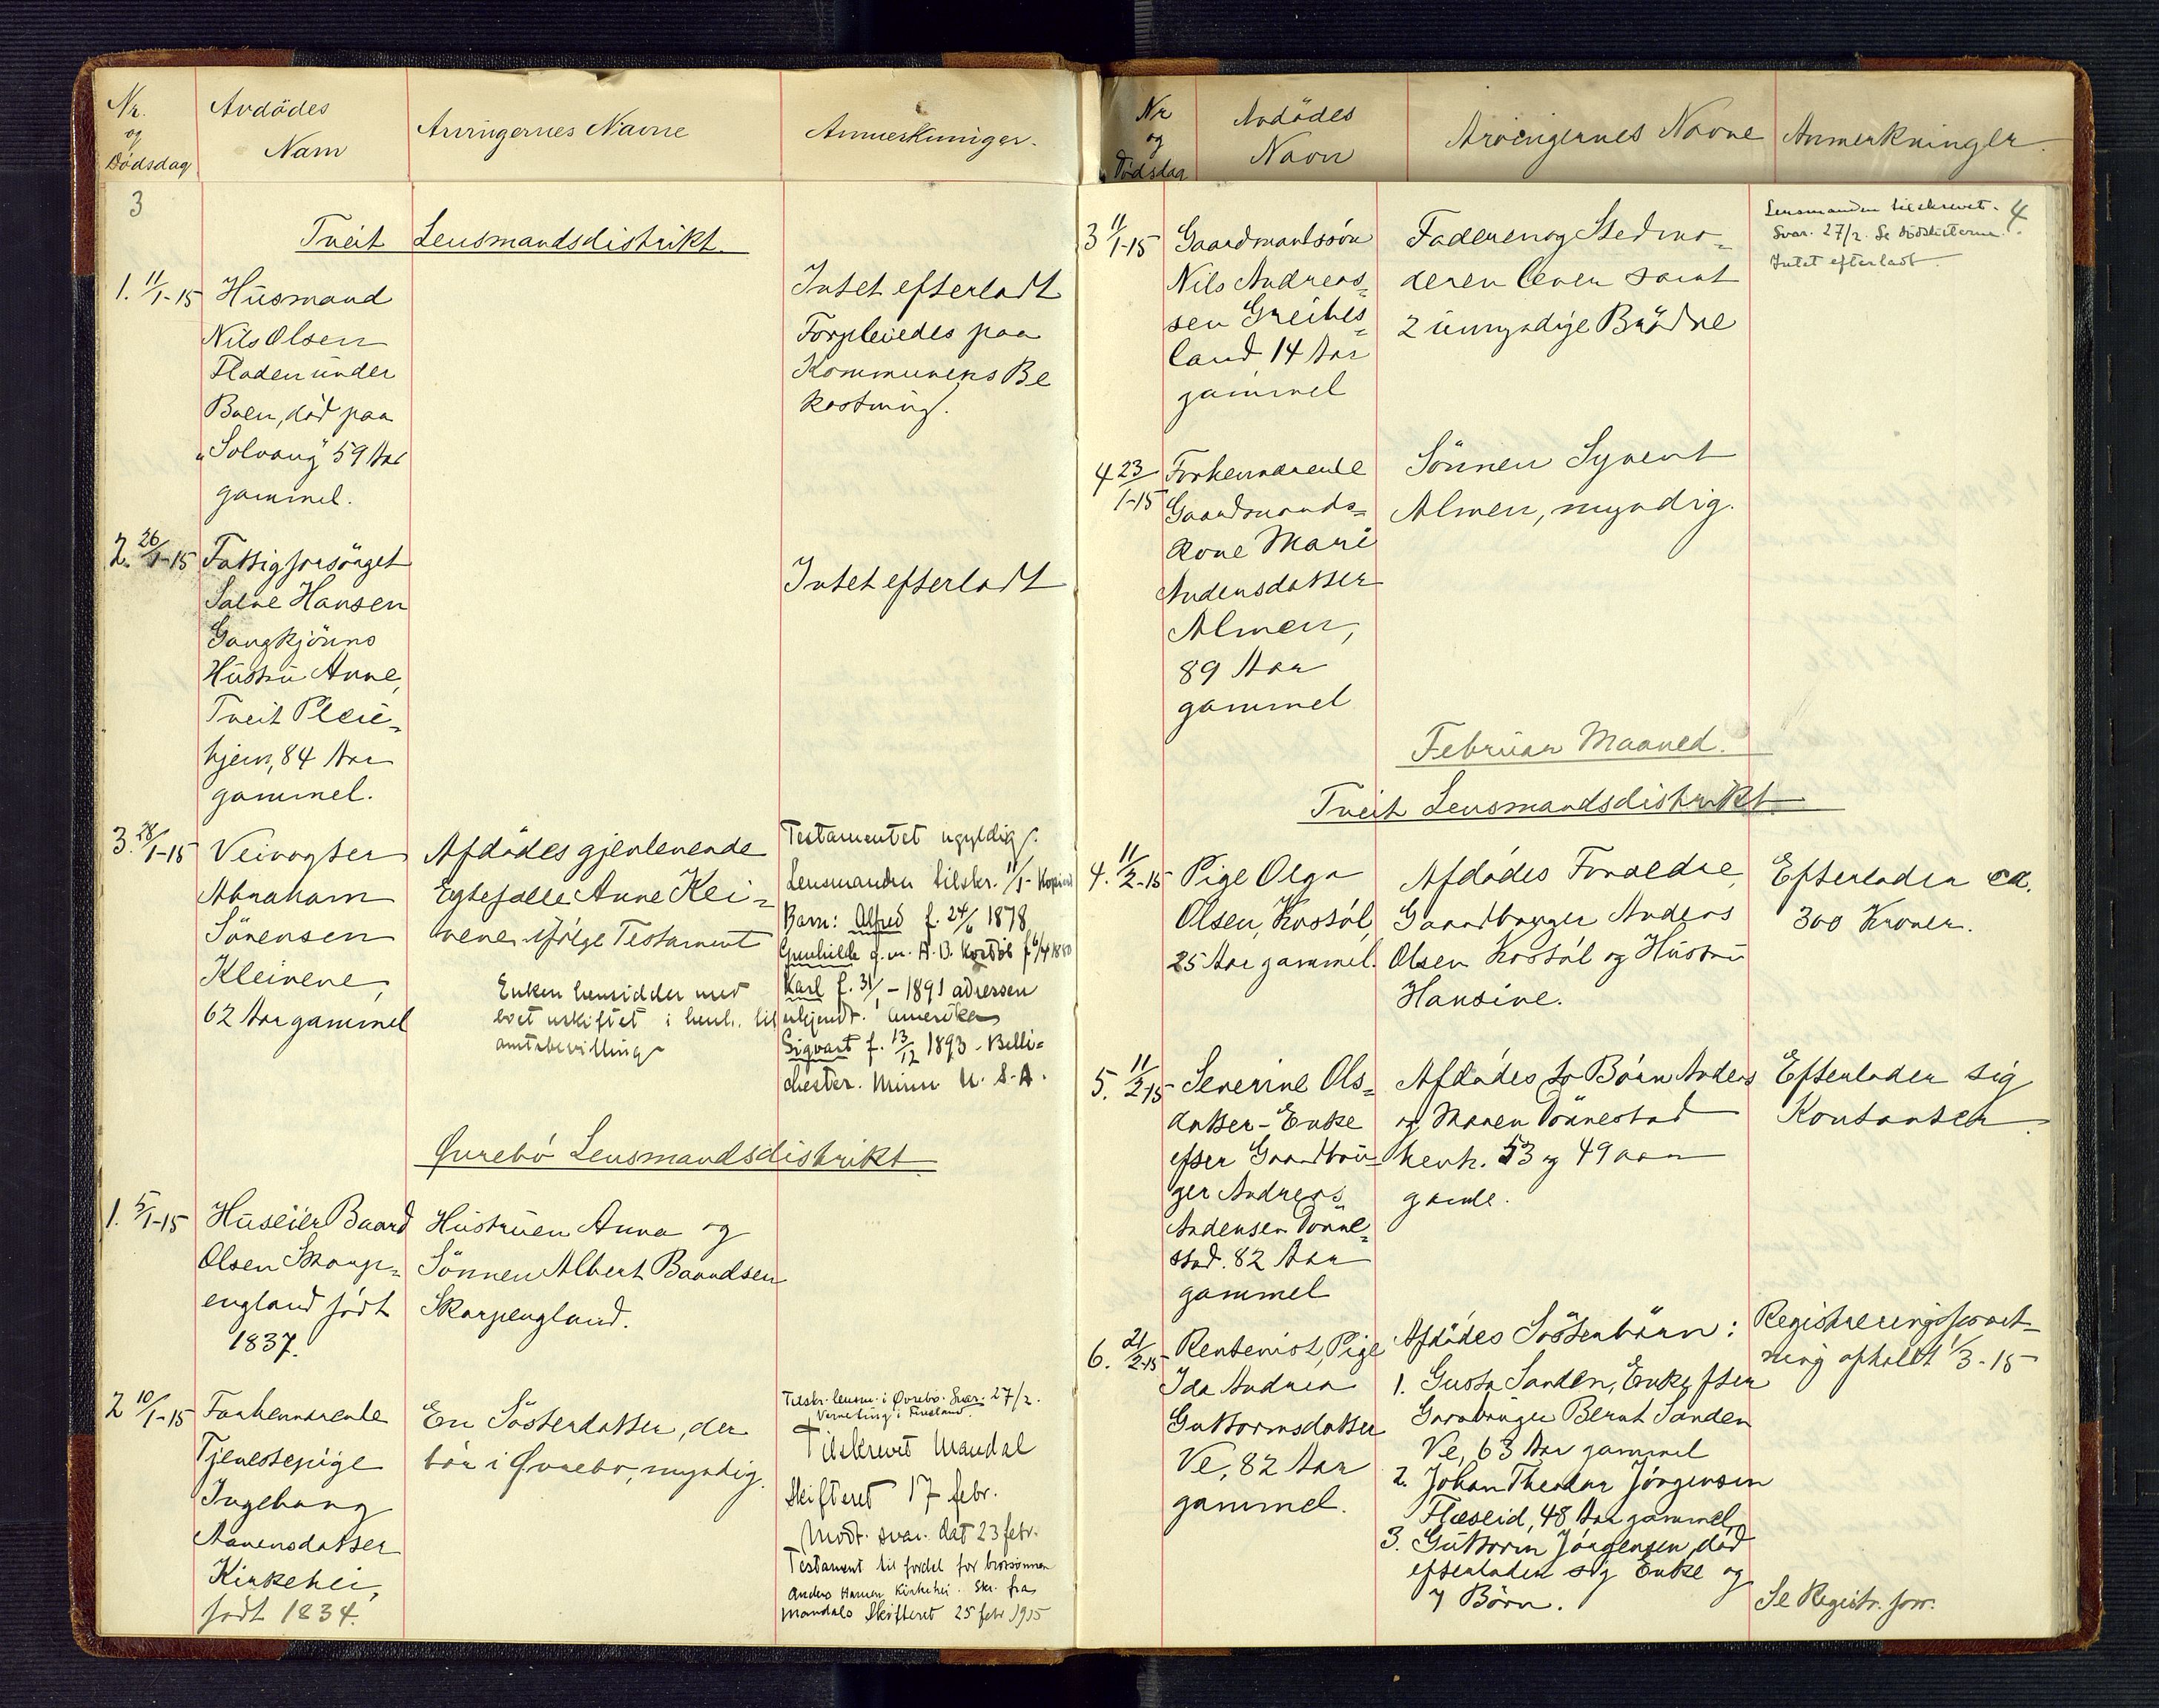 Nr.
og
Dødsdag
Avdødes
Navn
Arvingernes Navne
Anmerkninger.
3
Tveit Lensmandsdistrikt.
1. 11/1-15
Husmand
Nils Olsen
Fladen under
Boen, død paa
"Solvang" 59 Aar
gammel.
Intet efterladt
Forpleiedes paa
Kommunens Be
kostning.
2. 26/1-15
Fattigforsörget
Salve Hansen
Gangkjönns
Hustru Anne,
Tveit Pleie-
hjem, 84 Aar
gammel.
Intet efterladt
3. 28/1-15
Veivogter
Abraham
Sörensen
Kleivene,
62 Aar gammel
Afdødes gjenlevende
Egtefælle Anne Klei-
vene ifølge Testament
Enken hensidder med
boet uskiftet i henh. til
amtsbevilling
Testamentet ugyldig.
Lensmanden tilskr. 11/1- Kopied
Barn: Alfred f. 24/6 1878
Gunhilde g.m. A. B. Kostöl f 6/4 1880
Karl f. 31/1 - 1891 adressen
ukjendt. Amerika
Sigvart f. 13/12 1893 - Belli-
chester. Minn U. S. A.
Øvrebö Lensmandsdistrikt
1. 5/1-15
Huseier Baard
Olsen Skarp-
england født
1837.
Hustruen Anna og
Sönnen Albert Baardsen
Skarpengland.
2 10/1-15
Forhenværende
Tjenestepige
Ingeborg
Aanensdatter
Kirkehei,
født 1834.
En Søsterdatter, der
bor i Øvrebø, myndig.
Tilskr. lensm. i Øvrebø. Svar. 27/2.
Verneting i Finsland.
Tilskrevet Mandal
Skifteret 17 febr.
Modt. svar. dat 23 febr.
Testament til fordel for brorsønnen
Anders Hansen Kirkehei. Skr. fra
Mandals Skifteret 25 febr 1915
Nr
og
Dödsdag
Avdödes
Navn
Arvingernes Navne
Anmerkninger.
4
3 11/1-15
Gaardmandssön
Nils Andreas-
sen Greibes-
land 14 Aar
gammel
Faderen og Stedmo-
deren lever samt
2 umyndige Brödre
Lensmanden tilskrevet.
Svar. 27/2. Se dödslisterne.
Intet efterladt
4 23/1-15
Forhenværende
Gaardmands-
kone Mari
Andersdatter
Almen,
89 Aar
gammel
Sönnen Syvert
Almen, myndig.
Februar Maaned.
Tveit Lensmandsdistrikt
4. 11/2-15
Pige Olga
Olsen, Kostöl,
25 Aar gammel.
Afdødes Forældre,
Gaardbruger Anders
Olsen Kostöl og Hustru
Hansine.
Efterlader ca.
300 Kroner.
5. 11/2-15
Severine Ols-
datter - Enke
efter Gaardbru-
ger Andreas
Andersen Tönne-
stad. 82 Aar
gammel
Afdødes to Börn Anders
og Maren Tönnestad
henh. 53 og 49 aar
gamle.
Efterlader sig
Kontanter.
6. 21/2-15
Rentenist, Pige
Ida Andrea
Guttormsdatter
Ve, 82 Aar
gammel.
Afdødes Söstenbörn:
1. Gusta Sanden, Enke efter
Gardbruger Bernt Sanden
Ve, 63 Aar gammel
2. Johan Theodor Jörgensen
Flaeseid, 48 Aar gammel,
3. Guttorm Jörgensen, död
efterlader sig Enke og
7 Börn.
Registreringsforret-
ning afholdt 1/3-15
Se Registr. forr.